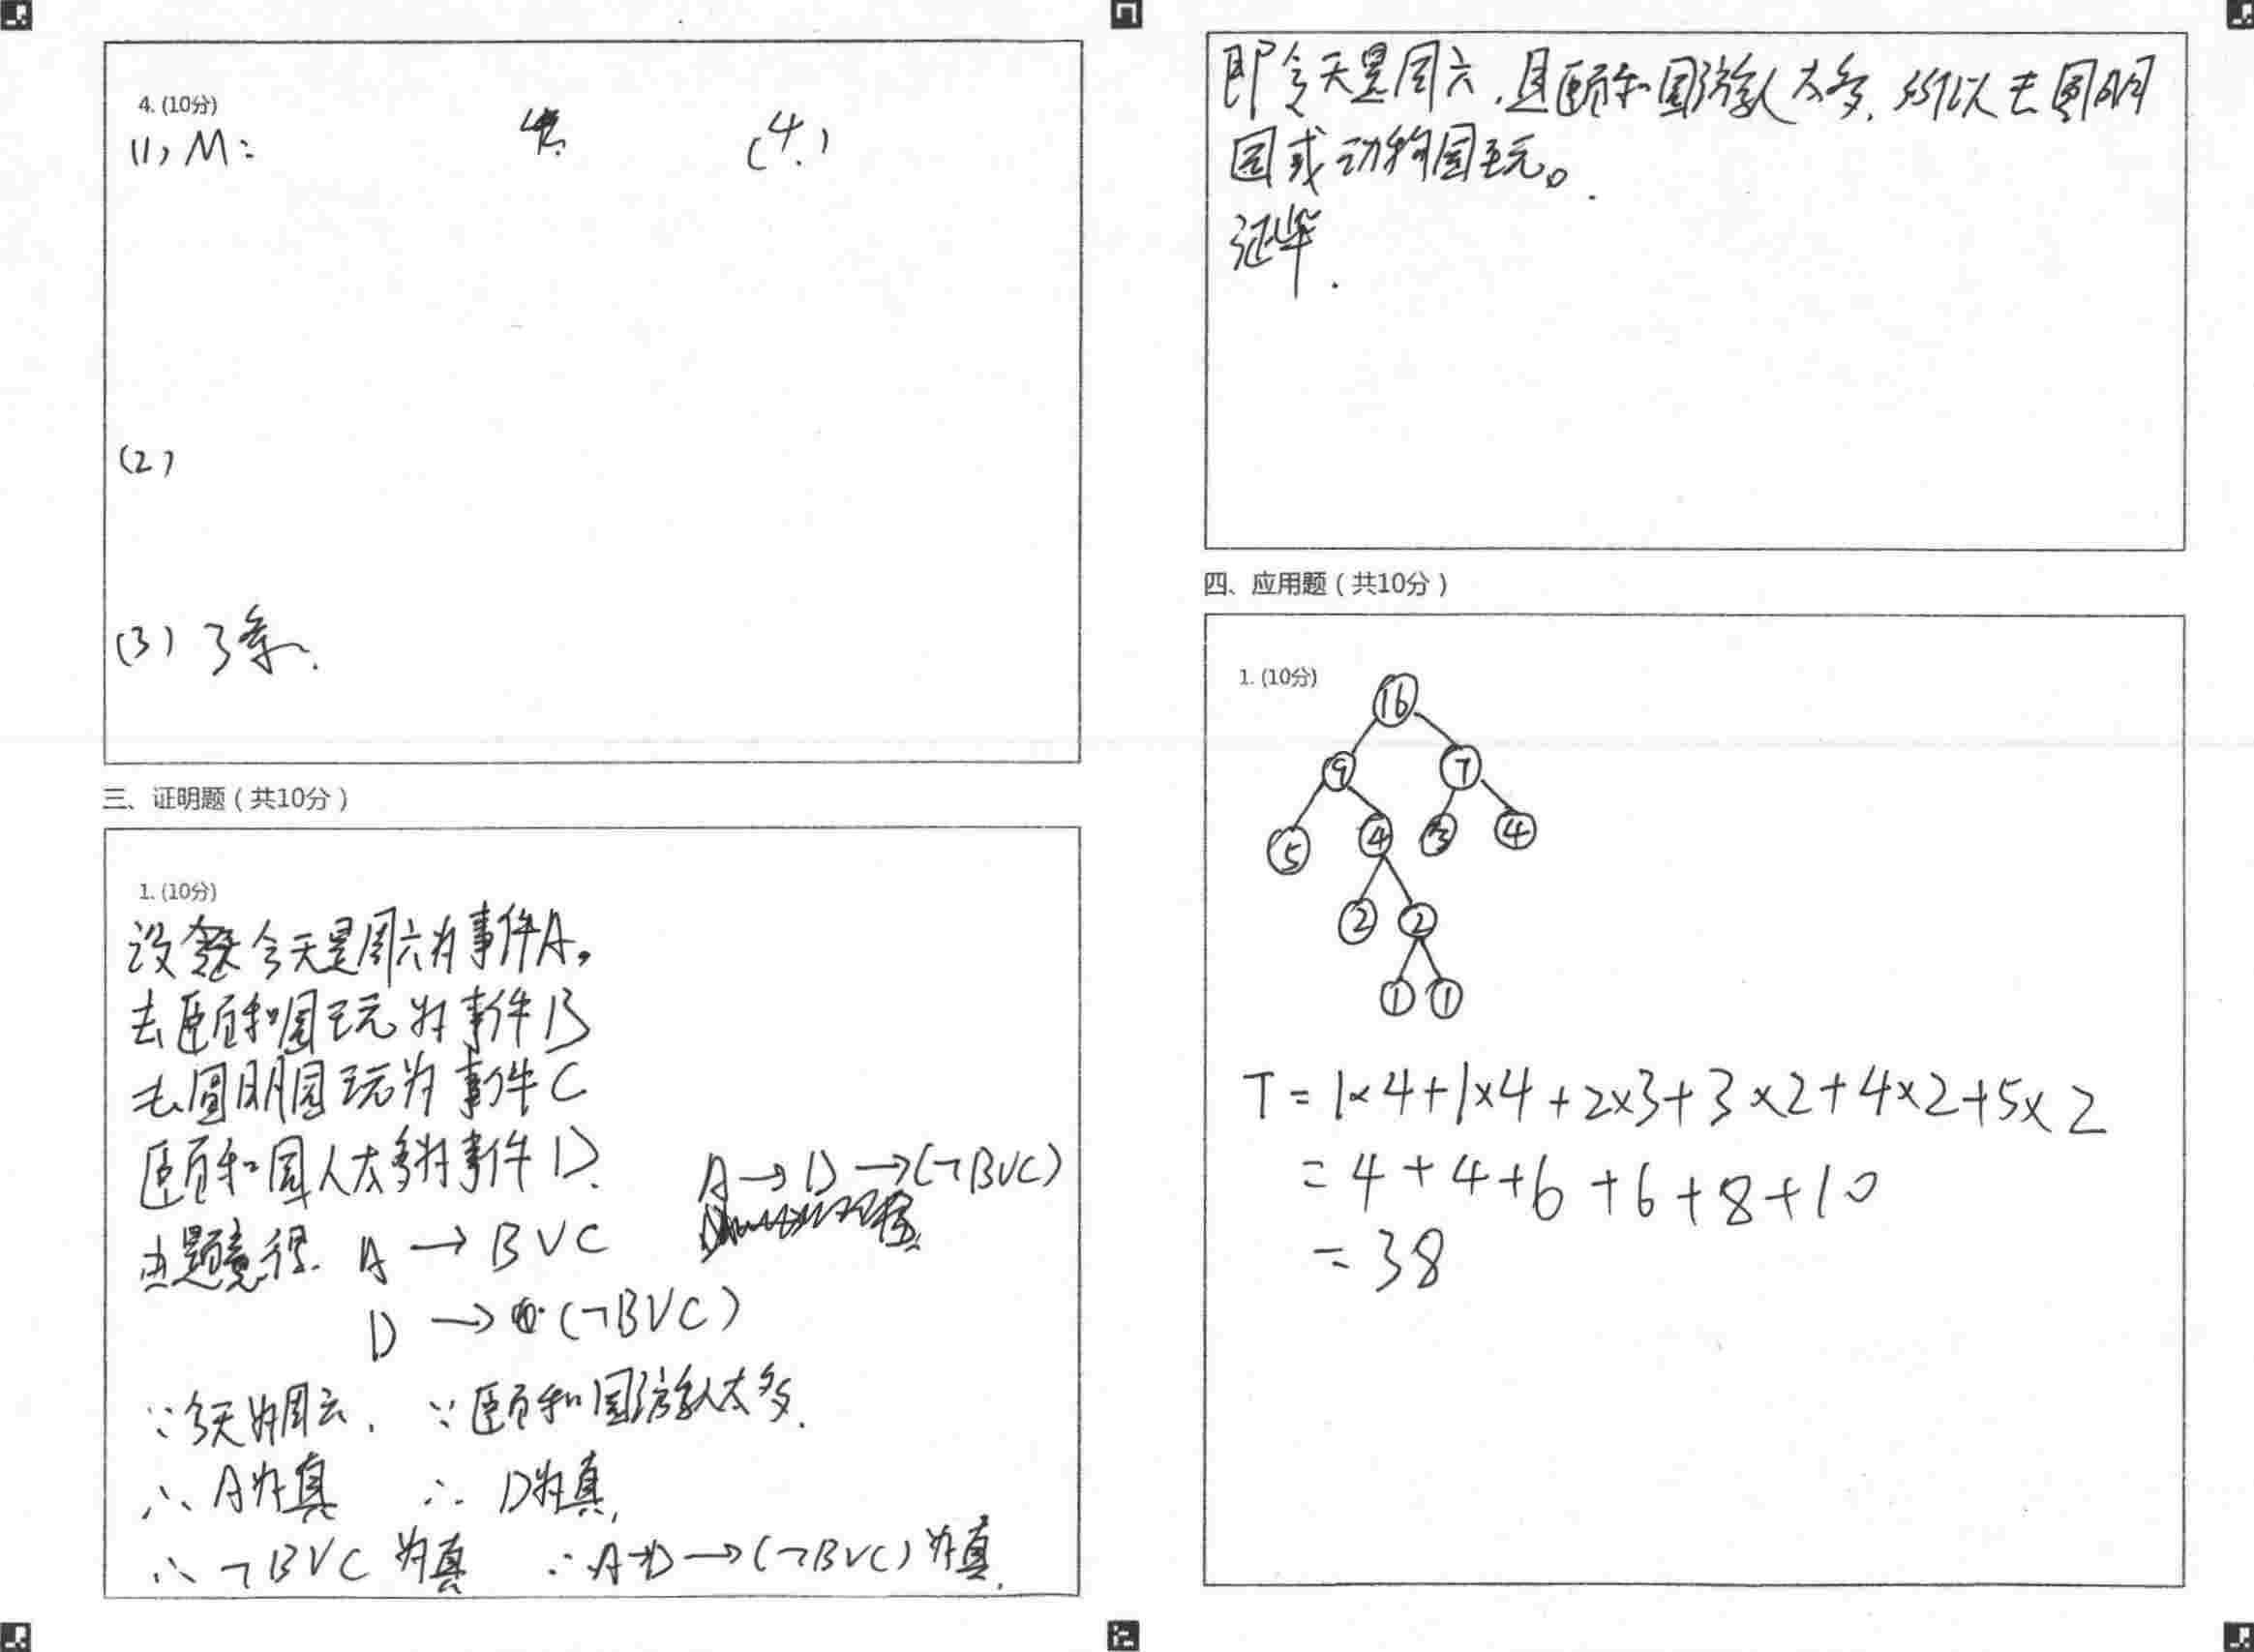 4. (10分)
(1) M:
(4)
(2)
(3) 3条.
三、证明题（共10分）
1. (10分)
设 今天是周六为事件A。
去颐和园玩为事件B
去圆明园玩为事件C
颐和园人太多为事件D.
由题意得. A → B∨C
A → D → (¬B∨C)
D → (¬B∨C)
∵今天为周六. ∵颐和园游人太多.
∴ A为真 ∴ D为真.
∴ ¬B∨C 为真 ∴ A→D→(¬B∨C)为真.
即今天是周六,且颐和园游人太多,所以去圆明
园或动物园玩。
证毕.
四、应用题（共10分）
1. (10分)
16
9 7
5 4 3 4
2 2
1 1
T = 1×4+1×4+2×3+3×2+4×2+5×2
= 4+4+6+6+8+10
= 38